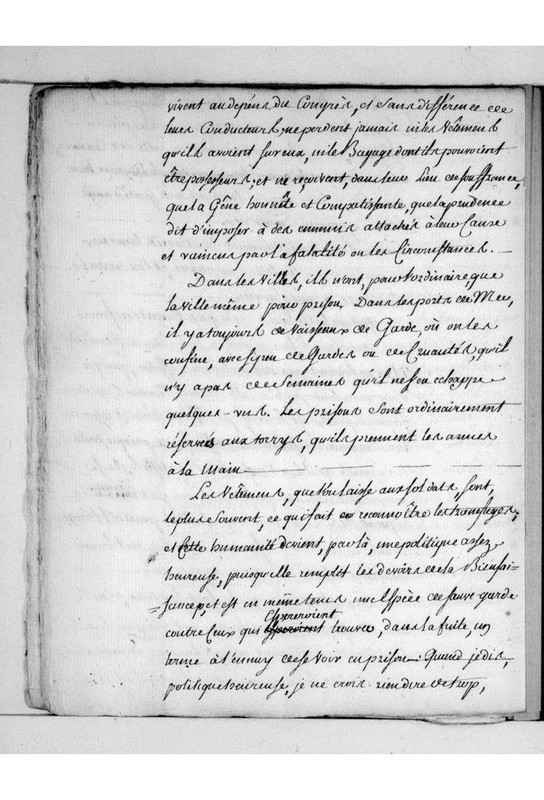 vivent au dépens du Congrès, et sans différence de
leurs Conducteurs, ne perdent jamais ni les Vêtemens
qu'ils avoient sur eux, ni le Bagage dont ils pouvoient
être possesseurs; et ne reçoivent, dans leur lieu de souffrance,
que la Gêne honnête et Compatissante, que la prudence
dit d'imposer à des ennemis attachés à leur Cause
et vaincus par la fatalité ou les Circonstances. —
Dans les Villes, ils n'ont, pour l'ordinaire, que
la Ville même pour prison. Dans les ports de Mer,
il y a toujours de Vaisseaux de Garde, où on les
confine, avec si peu de Gardes ou de Cruautés, qu'il
n'y a pas de semaines qu'il ne s'en echappe
quelques-uns. Les prisons sont ordinairement
réservés aux torrys, qu'ils prennent les armes
à la main
Les Vêtemens, que l'on laisse aux soldats, sont,
le plus souvent, ce qui fait reconnoître les transfuges;
et Cette humanité devient, par là, une politique assez
heureuse, puisqu'elle remplit les devoirs de la Bienfai-
=sance, et est en même tems une Espèce de sauve garde
Espereroient
contre Ceux qui trouver, dans la fuite, un
terme à l'ennuy de se voir en prison. Quand je dis,
politique heureuse, je ne crois rien dire de trop,